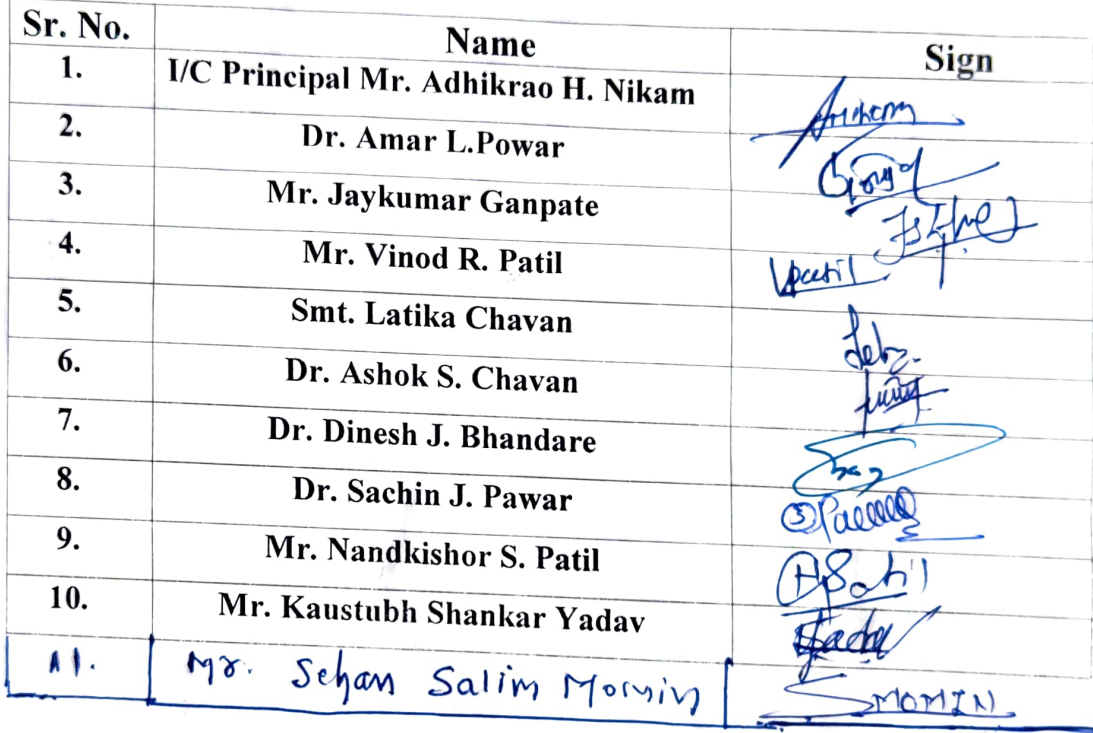 Sr. No. Name Sign
1. I/C Principal Mr. Adhikrao H. Nikam
2. Dr. Amar L.Powar
3. Mr. Jaykumar Ganpate
4. Mr. Vinod R. Patil Vpatil
5. Smt. Latika Chavan
6. Dr. Ashok S. Chavan
7. Dr. Dinesh J. Bhandare
8. Dr. Sachin J. Pawar
9. Mr. Nandkishor S. Patil
10. Mr. Kaustubh Shankar Yadav
11. Mr. Salim Momin SMOMIN